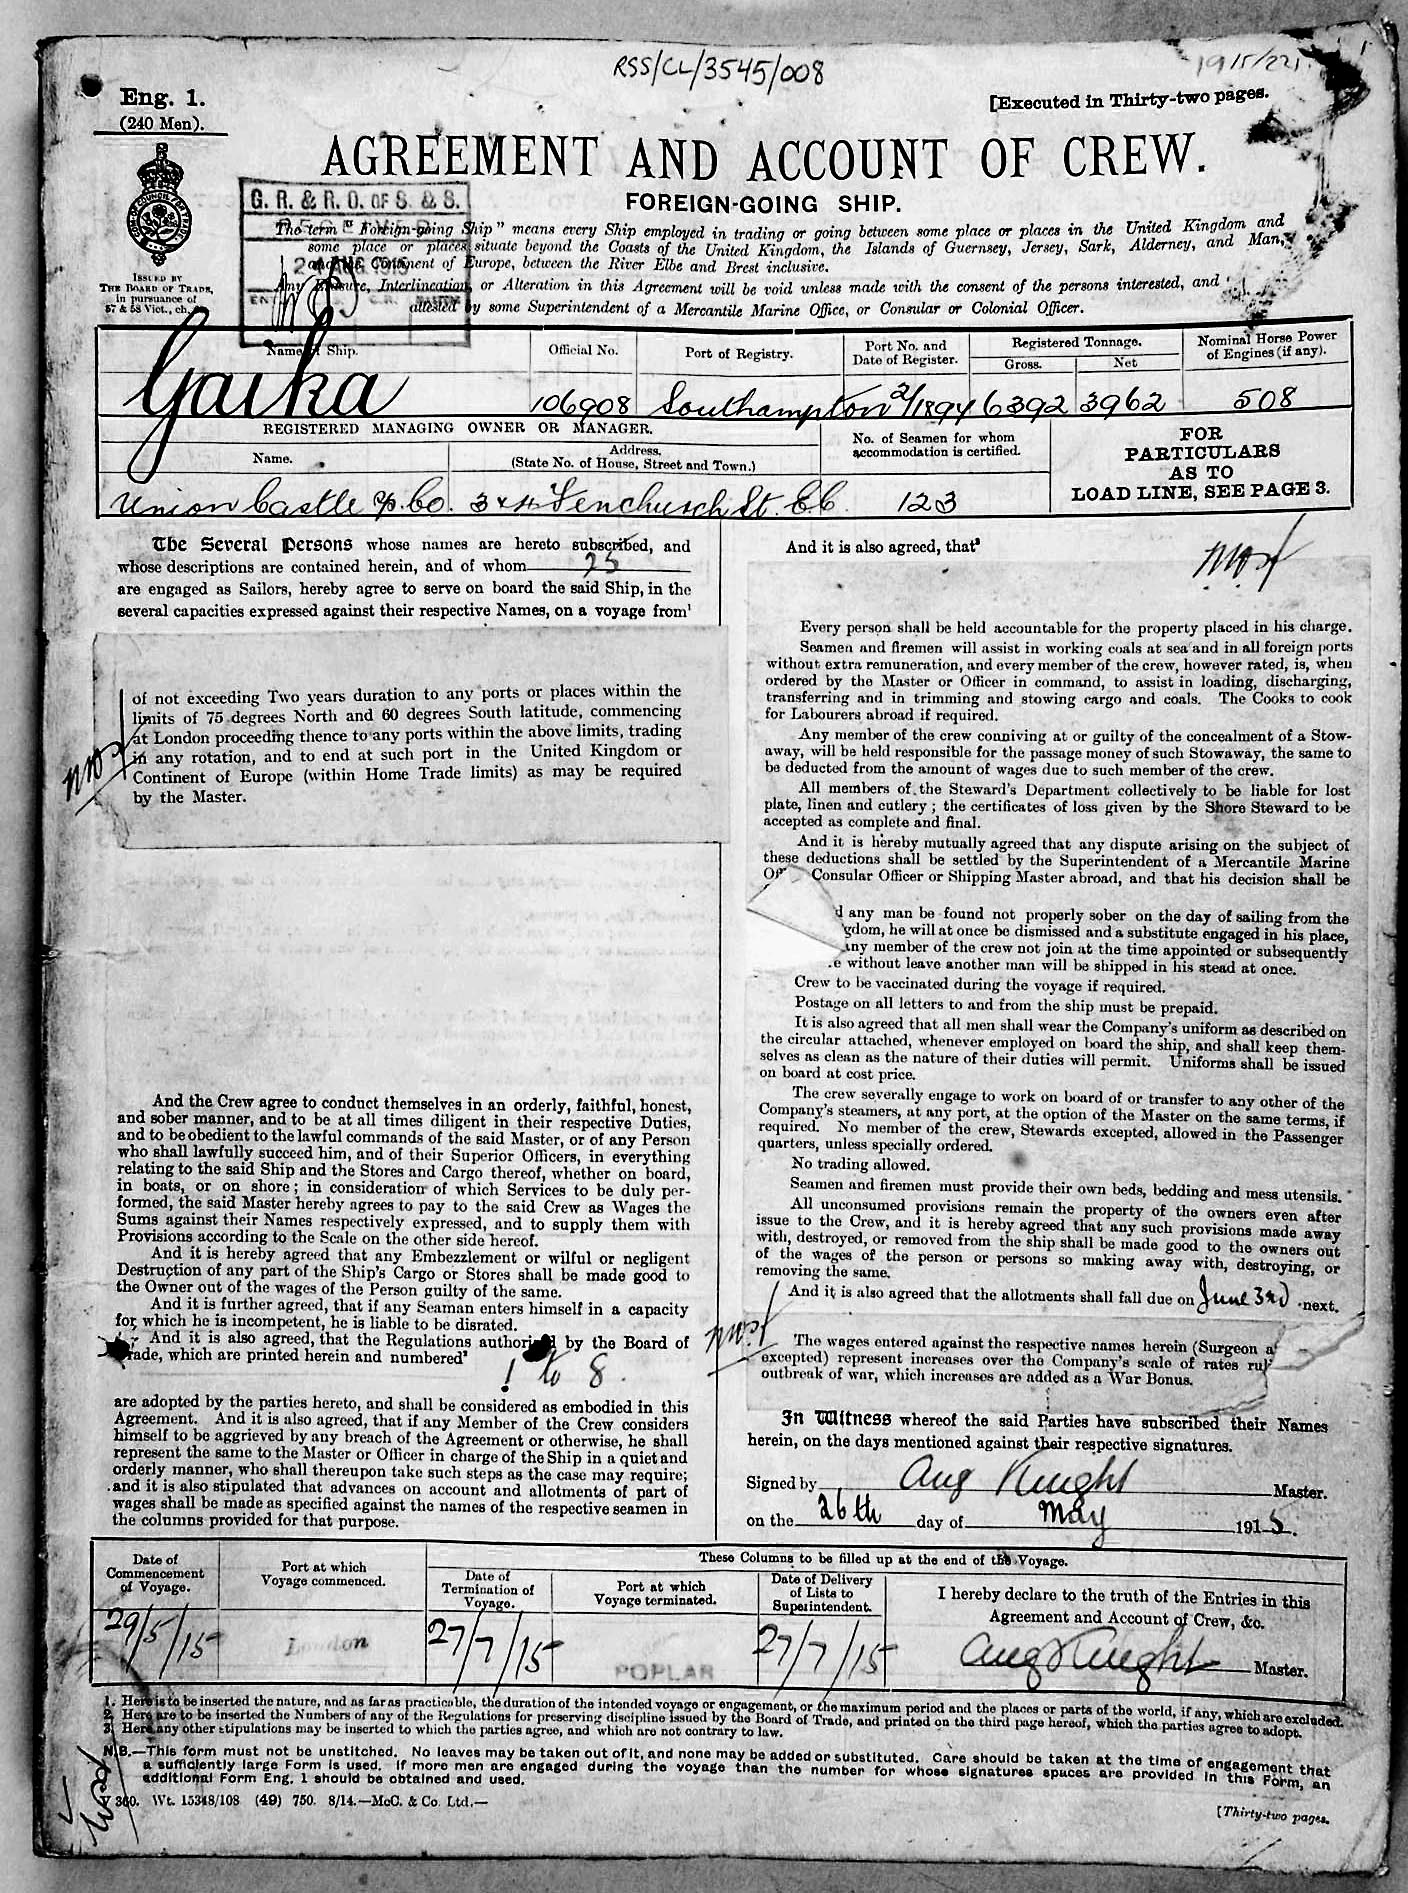 RSS/CL/3545/008
Eng. 1.
(240 Men).
[Executed in Thirty-two pages.
AGREEMENT AND ACCOUNT OF CREW.
FOREIGN-GOING SHIP.
G. R. & R. O. OF S. & S.
The term "Foreign-going Ship" means every Ship employed in trading or going between some place or places in the United Kingdom and
some place or places situate beyond the Coasts of the United Kingdom, the Islands of Guernsey, Jersey, Sark, Alderney, and Man,
and the Continent of Europe, between the River Elbe and Brest inclusive.
Any Erasure, Interlineation, or Alteration in this Agreement will be void unless made with the consent of the persons interested, and
attested by some Superintendent of a Mercantile Marine Office, or Consular or Colonial Officer.
ISSUED BY
THE BOARD OF TRADE,
in pursuance of
57 & 58 Vict., ch.
Name of Ship.
Official No.
Port of Registry.
Port No. and
Date of Register.
Registered Tonnage.
Gross.
Net
Nominal Horse Power
of Engines (if any).
Gaika
106908
Southampton
2/1894
6392
3962
508
REGISTERED MANAGING OWNER OR MANAGER.
Name.
Address.
(State No. of House, Street and Town.)
No. of Seamen for whom
accommodation is certified.
FOR
PARTICULARS
AS TO
LOAD LINE, SEE PAGE 3.
Union Castle Co.
3 & 4 Fenchurch St. E.C.
123
The Several Persons whose names are hereto subscribed, and
whose descriptions are contained herein, and of whom 75
are engaged as Sailors, hereby agree to serve on board the said Ship, in the
several capacities expressed against their respective Names, on a voyage from¹
of not exceeding Two years duration to any ports or places within the
limits of 75 degrees North and 60 degrees South latitude, commencing
at London proceeding thence to any ports within the above limits, trading
in any rotation, and to end at such port in the United Kingdom or
Continent of Europe (within Home Trade limits) as may be required
by the Master.
And the Crew agree to conduct themselves in an orderly, faithful, honest,
and sober manner, and to be at all times diligent in their respective Duties,
and to be obedient to the lawful commands of the said Master, or of any Person
who shall lawfully succeed him, and of their Superior Officers, in everything
relating to the said Ship and the Stores and Cargo thereof, whether on board,
in boats, or on shore; in consideration of which Services to be duly per-
formed, the said Master hereby agrees to pay to the said Crew as Wages the
Sums against their Names respectively expressed, and to supply them with
Provisions according to the Scale on the other side hereof.
And it is hereby agreed that any Embezzlement or wilful or negligent
Destruction of any part of the Ship's Cargo or Stores shall be made good to
the Owner out of the wages of the Person guilty of the same.
And it is further agreed, that if any Seaman enters himself in a capacity
for which he is incompetent, he is liable to be disrated.
And it is also agreed, that the Regulations authorised by the Board of
Trade, which are printed herein and numbered²
1 to 8.
are adopted by the parties hereto, and shall be considered as embodied in this
Agreement. And it is also agreed, that if any Member of the Crew considers
himself to be aggrieved by any breach of the Agreement or otherwise, he shall
represent the same to the Master or Officer in charge of the Ship in a quiet and
orderly manner, who shall thereupon take such steps as the case may require;
and it is also stipulated that advances on account and allotments of part of
wages shall be made as specified against the names of the respective seamen in
the columns provided for that purpose.
And it is also agreed, that³
Every person shall be held accountable for the property placed in his charge.
Seamen and firemen will assist in working coals at sea and in all foreign ports
without extra remuneration, and every member of the crew, however rated, is, when
ordered by the Master or Officer in command, to assist in loading, discharging,
transferring and in trimming and stowing cargo and coals. The Cooks to cook
for Labourers abroad if required.
Any member of the crew conniving at or guilty of the concealment of a Stow-
away, will be held responsible for the passage money of such Stowaway, the same to
be deducted from the amount of wages due to such member of the crew.
All members of the Steward's Department collectively to be liable for lost
plate, linen and cutlery; the certificates of loss given by the Shore Steward to be
accepted as complete and final.
And it is hereby mutually agreed that any dispute arising on the subject of
these deductions shall be settled by the Superintendent of a Mercantile Marine
Consular Officer or Shipping Master abroad, and that his decision shall be
d any man be found not properly sober on the day of sailing from the
gdom, he will at once be dismissed and a substitute engaged in his place,
any member of the crew not join at the time appointed or subsequently
e without leave another man will be shipped in his stead at once.
Crew to be vaccinated during the voyage if required.
Postage on all letters to and from the ship must be prepaid.
It is also agreed that all men shall wear the Company's uniform as described on
the circular attached, whenever employed on board the ship, and shall keep them-
selves as clean as the nature of their duties will permit. Uniforms shall be issued
on board at cost price.
The crew severally engage to work on board of or transfer to any other of the
Company's steamers, at any port, at the option of the Master on the same terms, if
required. No member of the crew, Stewards excepted, allowed in the Passenger
quarters, unless specially ordered.
No trading allowed.
Seamen and firemen must provide their own beds, bedding and mess utensils.
All unconsumed provisions remain the property of the owners even after
issue to the Crew, and it is hereby agreed that any such provisions made away
with, destroyed, or removed from the ship shall be made good to the owners out
of the wages of the person or persons so making away with, destroying, or
removing the same.
And it is also agreed that the allotments shall fall due on June 3rd next.
The wages entered against the respective names herein (Surgeon
excepted) represent increases over the Company's scale of rates
outbreak of war, which increases are added as a War Bonus.
In Witness whereof the said Parties have subscribed their Names
herein, on the days mentioned against their respective signatures.
Signed by Aug Knight Master.
on the 26th day of May 1915.
Date of
Commencement
of Voyage.
Port at which
Voyage commenced.
These Columns to be filled up at the end of the Voyage.
Date of
Termination of
Voyage.
Port at which
Voyage terminated.
Date of Delivery
of Lists to
Superintendent.
I hereby declare to the truth of the Entries in this
Agreement and Account of Crew, &c.
29/5/15
London
27/7/15
POPLAR
27/7/15
Aug Knight Master.
1. Here is to be inserted the nature, and as far as practicable, the duration of the intended voyage or engagement, or the maximum period and the places or parts of the world, if any, which are excluded.
2. Here are to be inserted the Numbers of any of the Regulations for preserving discipline issued by the Board of Trade, and printed on the third page hereof, which the parties agree to adopt.
3. Here any other stipulations may be inserted to which the parties agree, and which are not contrary to law.
N.B.—This form must not be unstitched. No leaves may be taken out of it, and none may be added or substituted. Care should be taken at the time of engagement that
a sufficiently large Form is used. If more men are engaged during the voyage than the number for whose signatures spaces are provided in this Form, an
additional Form Eng. 1 should be obtained and used.
360. Wt. 15348/108 (49) 750. 8/14.—McC. & Co. Ltd.—
[Thirty-two pages.